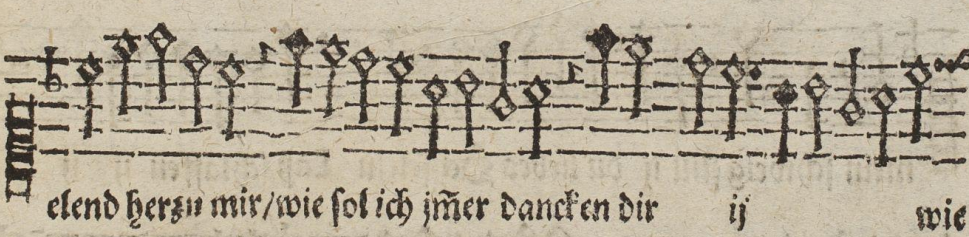 elend herzu mir/wie ſol ich jm̃er dancken dir ij wie